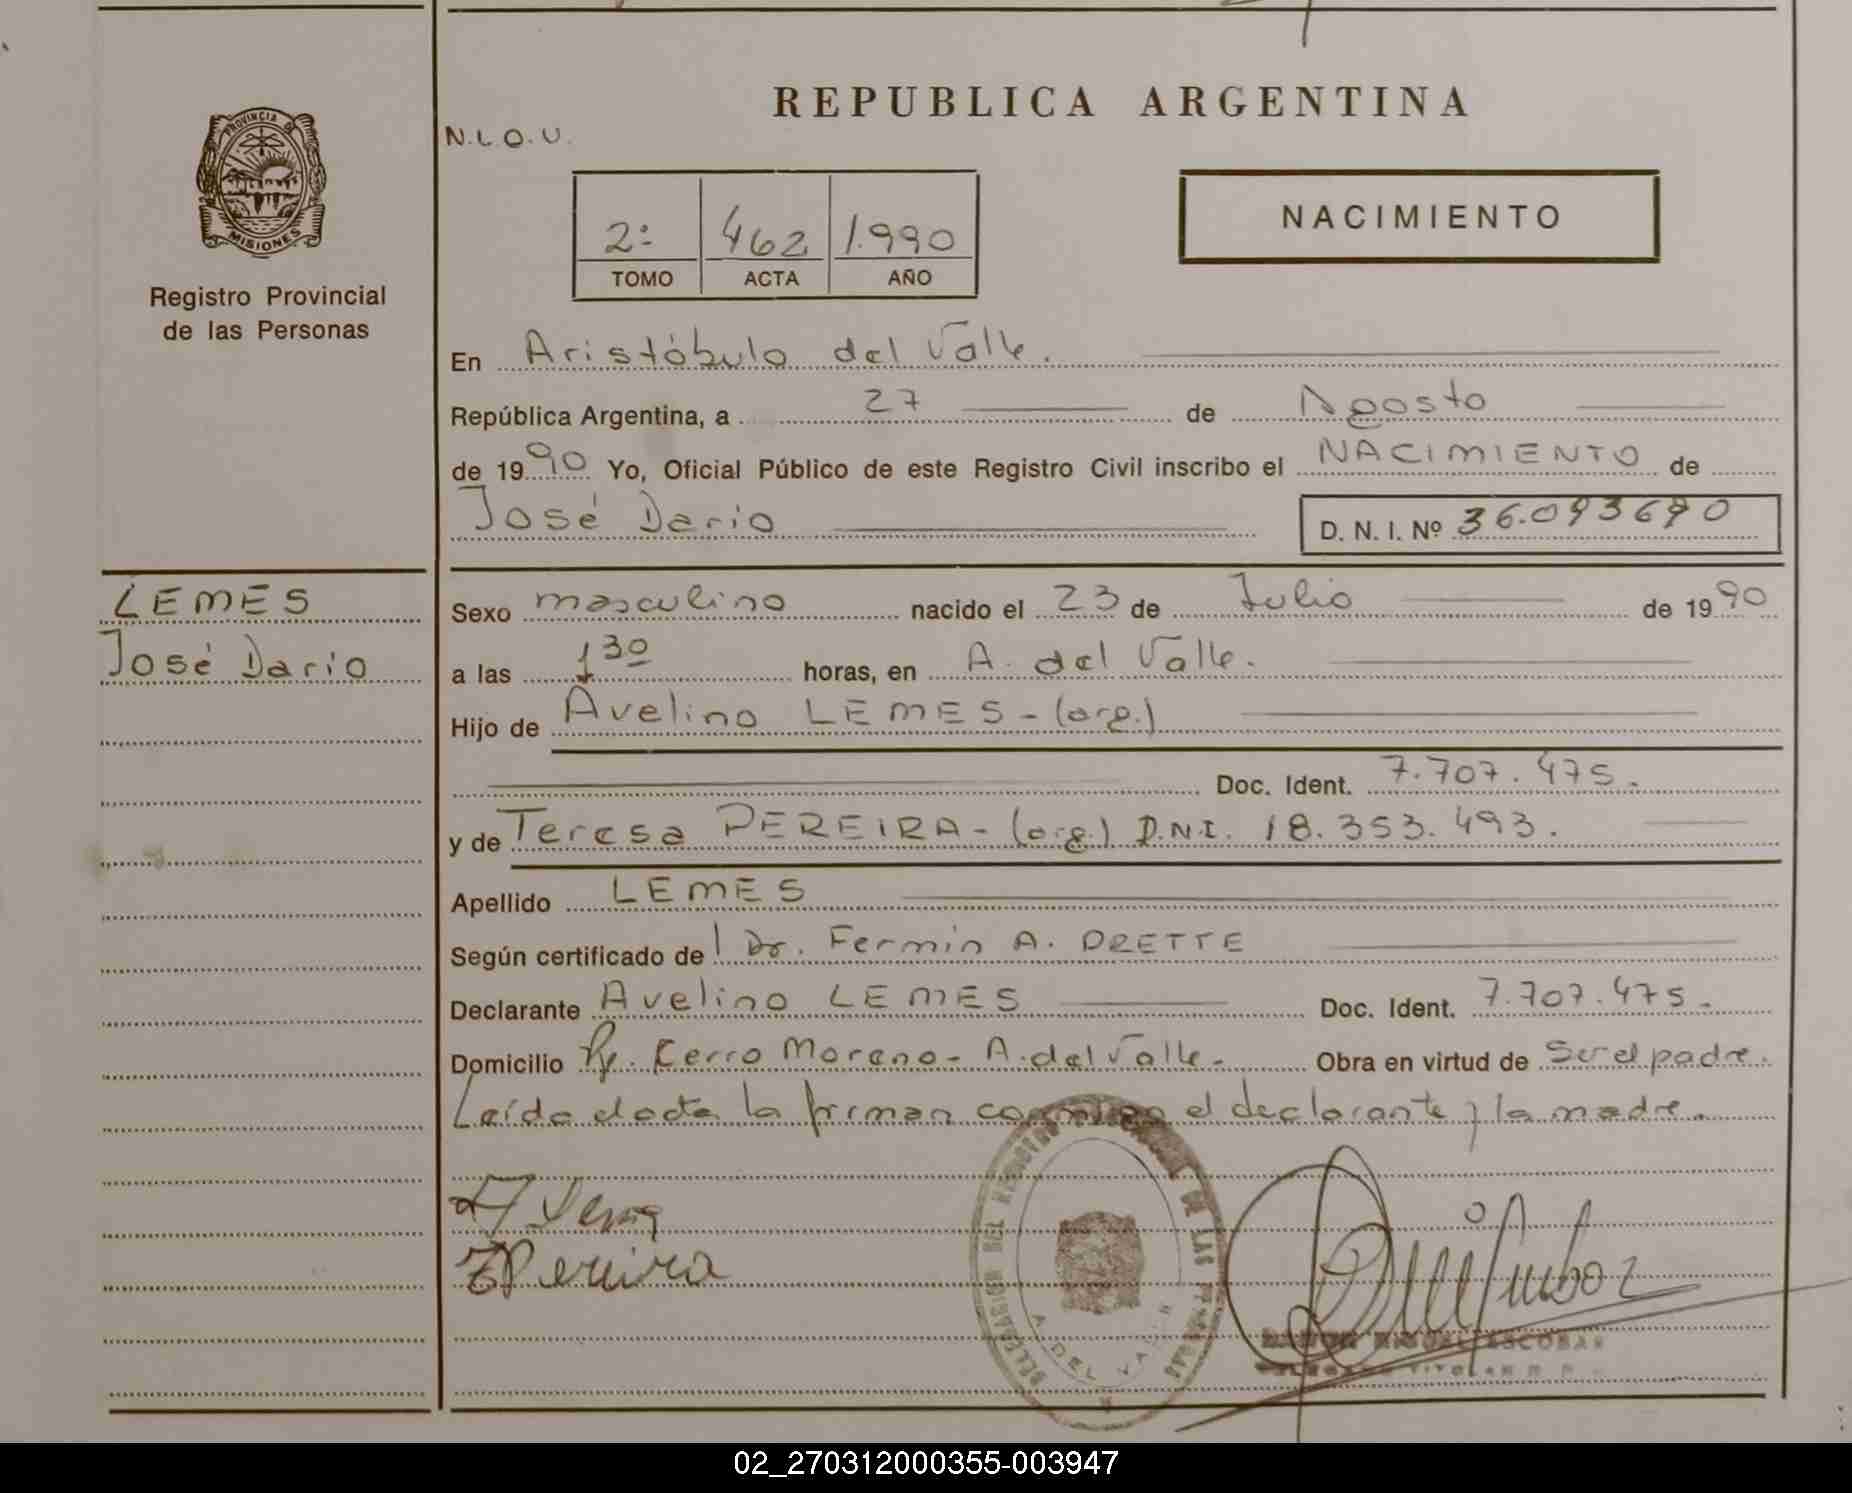 REPUBLICA ARGENTINA
N.L.O.U.
PROVINCIA DE
MISIONES
Registro Provincial
de las Personas
2º 462 1.990
TOMO ACTA AÑO
NACIMIENTO
En Aristóbulo del Valle.
República Argentina, a 27 de Agosto
de 1990 Yo, Oficial Público de este Registro Civil inscribo el NACIMIENTO de
José Dario D. N. I. Nº
LEMES
José Dario
Sexo masculino nacido el 23 de Julio de 1990
a las 1 30 horas, en A. del Valle.
Hijo de Avelino LEMES - (arg.)
Doc. Ident. 7.707.475.
y de Teresa PEREIRA - (arg.) D.N.I. 18.353.493.
Apellido LEMES
Según certificado de l Dr. Fermin A. DRETTE
Declarante Avelino LEMES Doc. Ident. 7.707.475.
Domicilio Pje. Cerro Moreno - A. del Valle - Obra en virtud de Ser el padre.
Leída el acta la firman conmigo el declarante y la madre.
A Lemes
T Pereira
DELEGACION DEL REGISTRO PROVINCIAL DE LAS PERSONAS
A. DEL VALLE
RAMON MIGUEL ESCOBAR
02_270312000355-003947